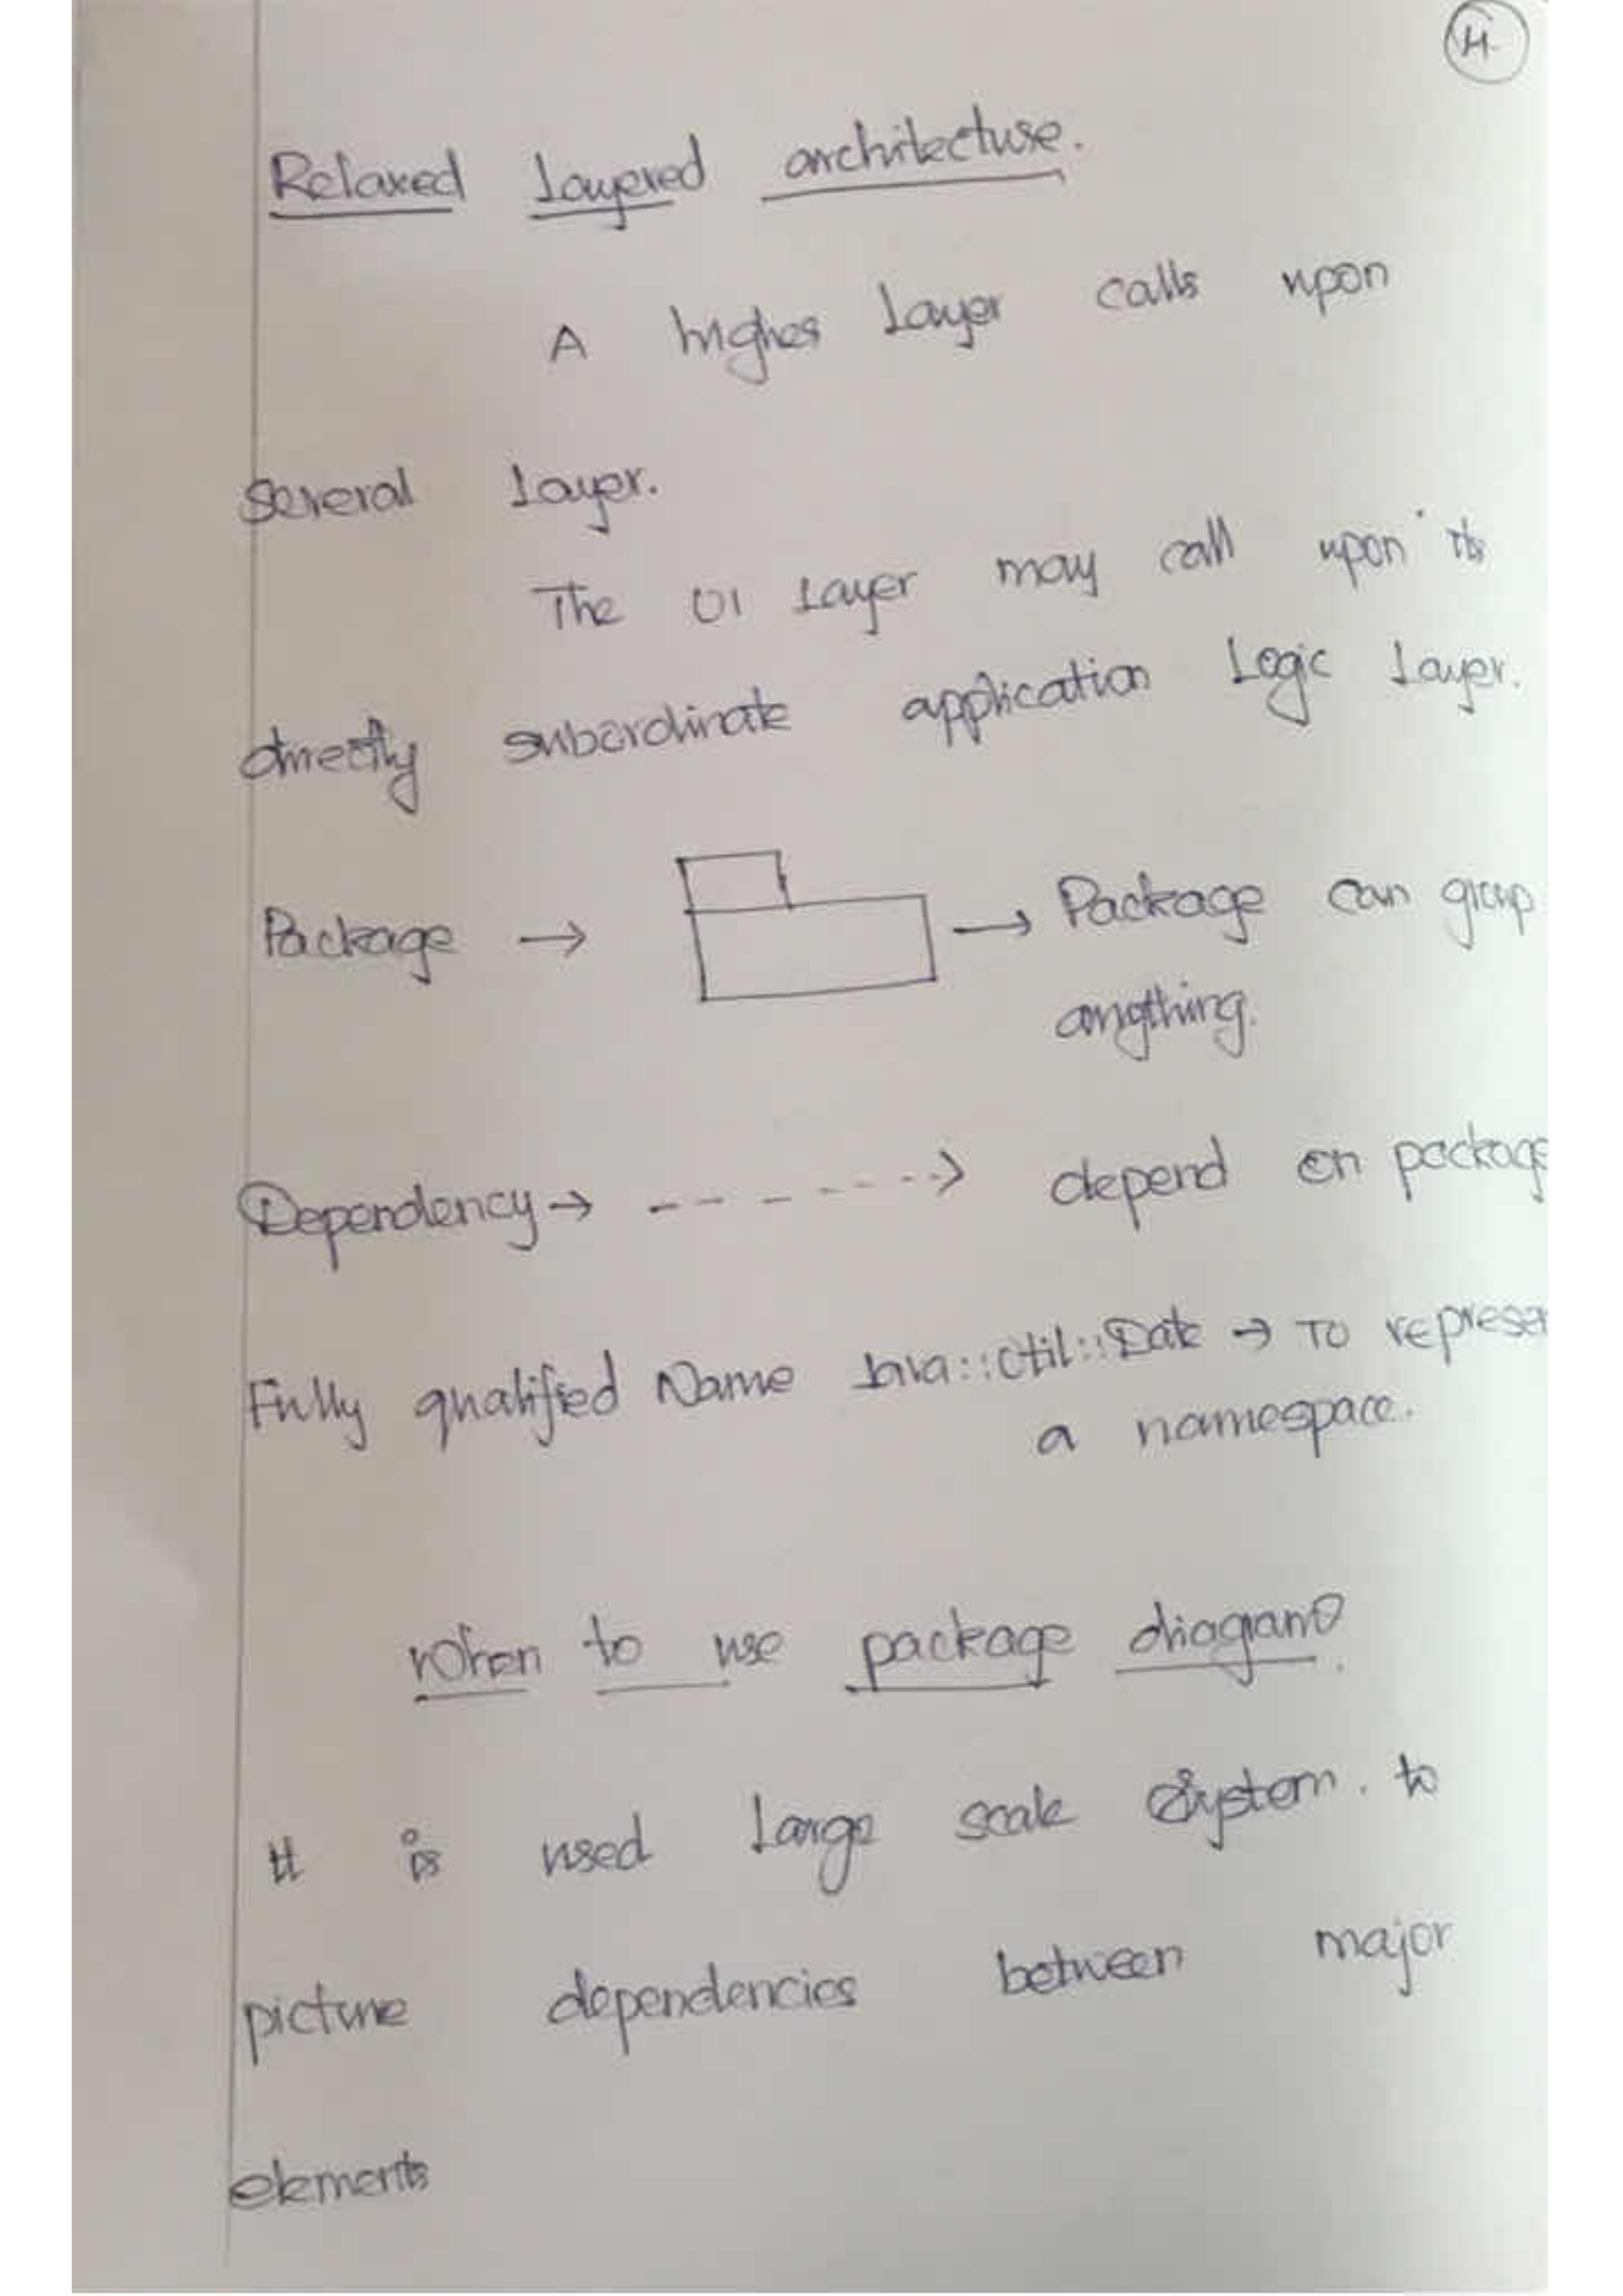 4.
Relaxed Layered architecture.
A higher Layer calls upon
Several Layer.
The UI Layer may call upon its
directly subordinate application Logic Layer.
Package → → Package can group
anything.
Dependency → - - - - - - -> depend on package
Fully qualified Name Java::Util::Date → To represen
a namespace.
When to use package diagram?
It is used Large scale System. to
picture dependencies between major
elements